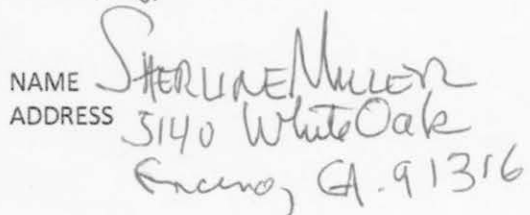 NAME SHERLINE MILLER
ADDRESS 5140 White Oak
Encino, CA. 91316